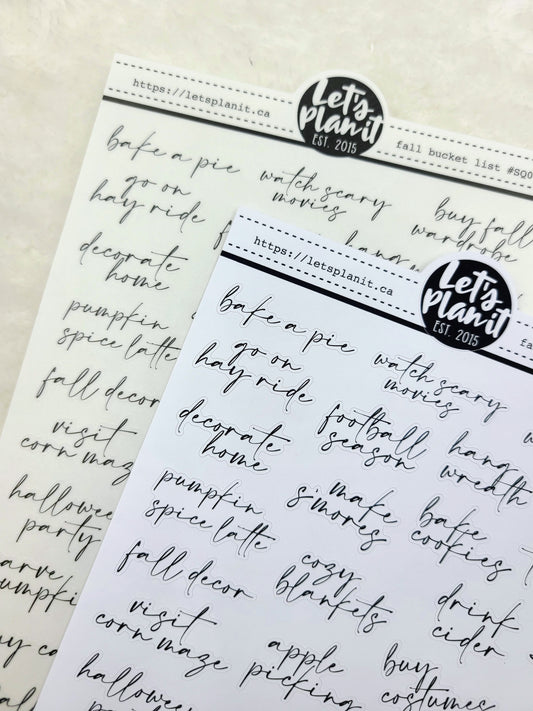 https://letsplanit.ca
Let's
plan it
EST. 2015
fall bucket list #SQ0
bake a pie
watch scary
movies
buy fall
wardrobe
go on
hay ride
decorate
home
pumpkin
spice latte
fall decor
visit
corn maze
hallowee
party
arve
umpki
uy ca
hang
https://letsplanit.ca
Let's
plan it
EST. 2015
fa
bake a pie
watch scary
movies
go on
hay ride
football
season
hang
wreath
decorate
home
make
s'mores
bake
cookies
pumpkin
spice latte
cozy
blankets
drink
cider
fall decor
visit
corn maze
apple
picking
buy
costumes
hallowee